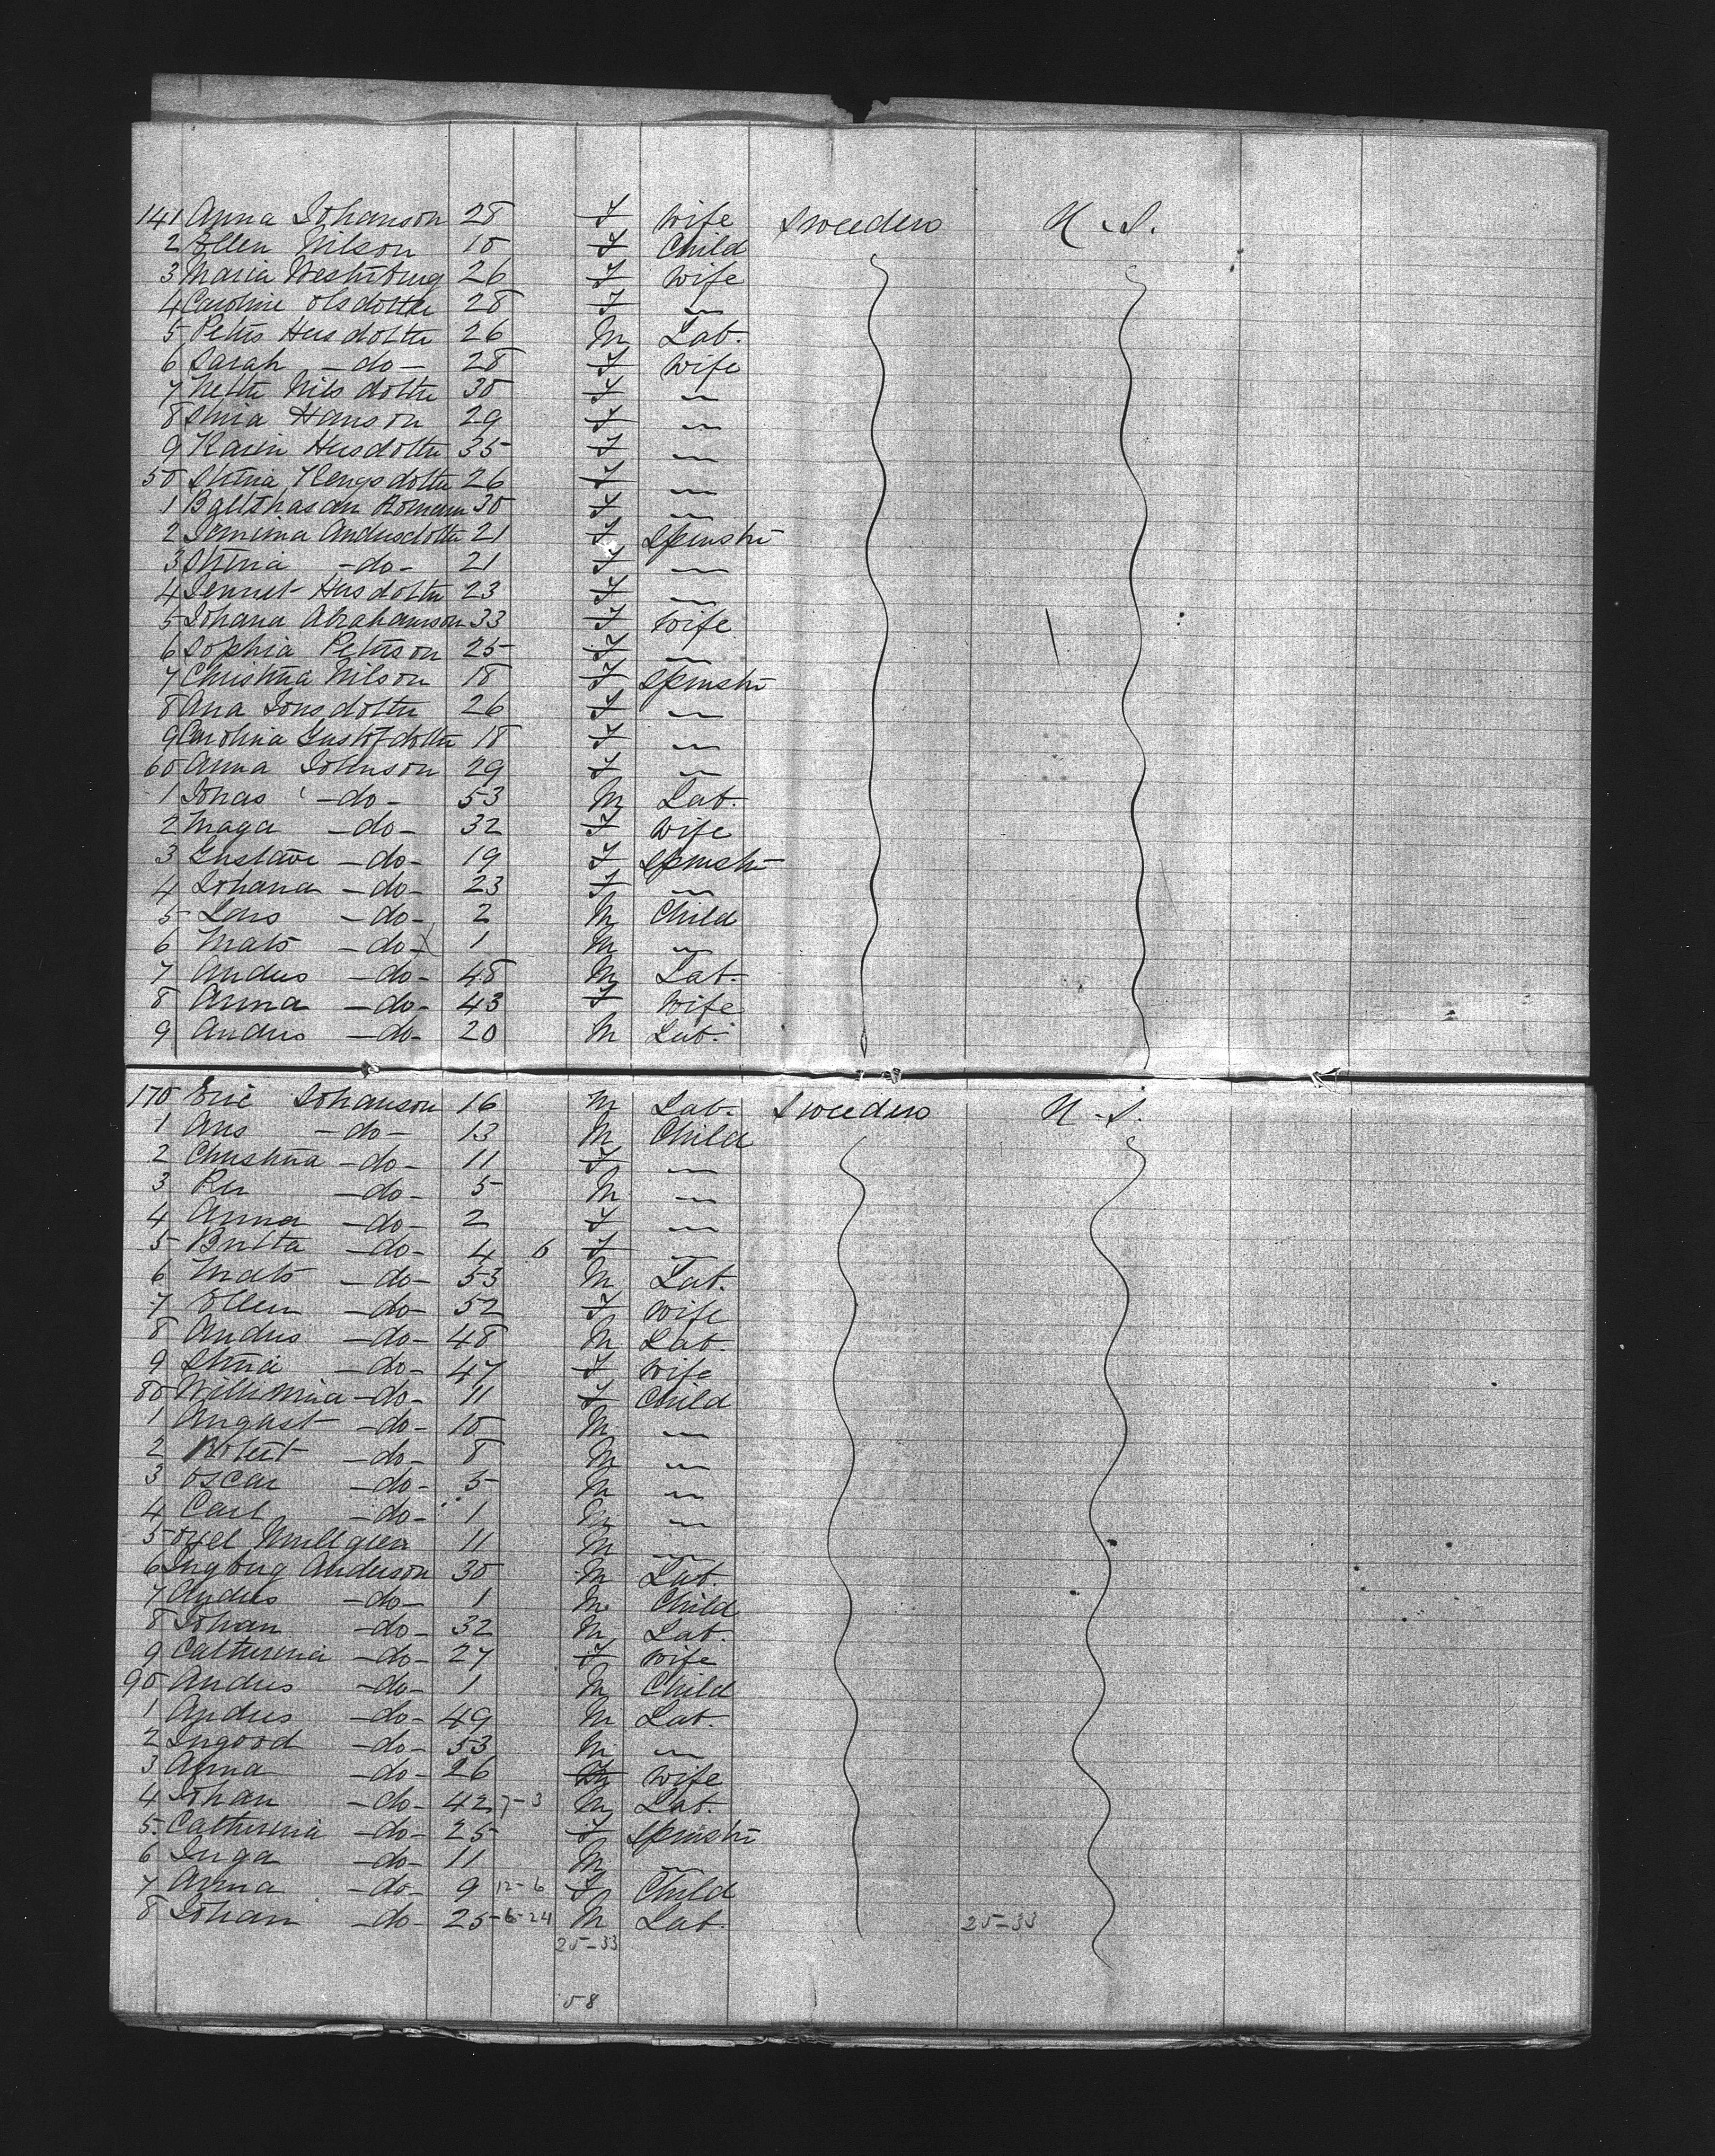 141 Anna Johanson 28 F Wife Sweeden U.S.
2 Ellen Nilson 10 F Child
3 Maria 26 F Wife
4 Caroline Olsdotter 28 F "
5 Peter Hersdotter 26 M Lab.
6 Sarah -do- 28 F Wife
7 Nette Nilsdotter 30 F "
8 Stina Hanson 29 F "
9 Karin Hersdotter 35 F "
50 Stina 26 F "
1 30 F "
2 Jemima Andersdotter 21 F Spinster
3 Stina -do- 21 F "
4 Hersdotter 23 F "
5 Johana Abrahamson 33 F Wife
6 Sophia Peterson 25 F "
7 Christina Nilson 18 F Spinster
8 Ana Jonsdotter 26 F "
9 Carolina Gustofdotter 18 F "
60 Anna Johnson 29 F "
1 Jonas -do- 53 M Lab.
2 Maga -do- 32 F Wife
3 Gustave -do- 19 F Spinster
4 Johana -do- 23 F "
5 Lars -do- 2 M Child
6 Mats -do- 1 M "
7 Anders -do- 48 M Lab.
8 Anna -do- 43 F Wife
9 Anders -do- 20 M Lab.
170 Eric Johanson 16 M Lab. Sweeden U.S.
1 Ans -do- 13 M Child
2 Christina -do- 11 F "
3 Per -do- 5 M "
4 Anna -do- 2 F "
5 Britta -do- 4 6 F "
6 Mats -do- 53 M Lab.
7 Ellen -do- 52 F Wife
8 Anders -do- 48 M Lab.
9 Stina -do- 47 F Wife
80 Willemina -do- 11 F Child
1 August -do- 10 M "
2 Robert -do- 8 M "
3 Oscar -do- 5 M "
4 Carl -do- 1 M "
5 11 M "
6 Ingborg Anderson 30 M Lab.
7 Anders -do- 1 M Child
8 Johan -do- 32 M Lab.
9 Catherina -do- 27 F Wife
90 Anders -do- 1 M Child
1 Anders -do- 49 M Lab.
2 Ingoord -do- 53 M "
3 Anna -do- 26 Wife
4 Johan -do- 42 7-3 M Lab.
5 Catherina -do- 25 F Spinster
6 Inga -do- 11 M "
7 Anna -do- 9 12-6 F Child
8 Johan -do- 25 6-24 M Lab. 25-33
25-33
58